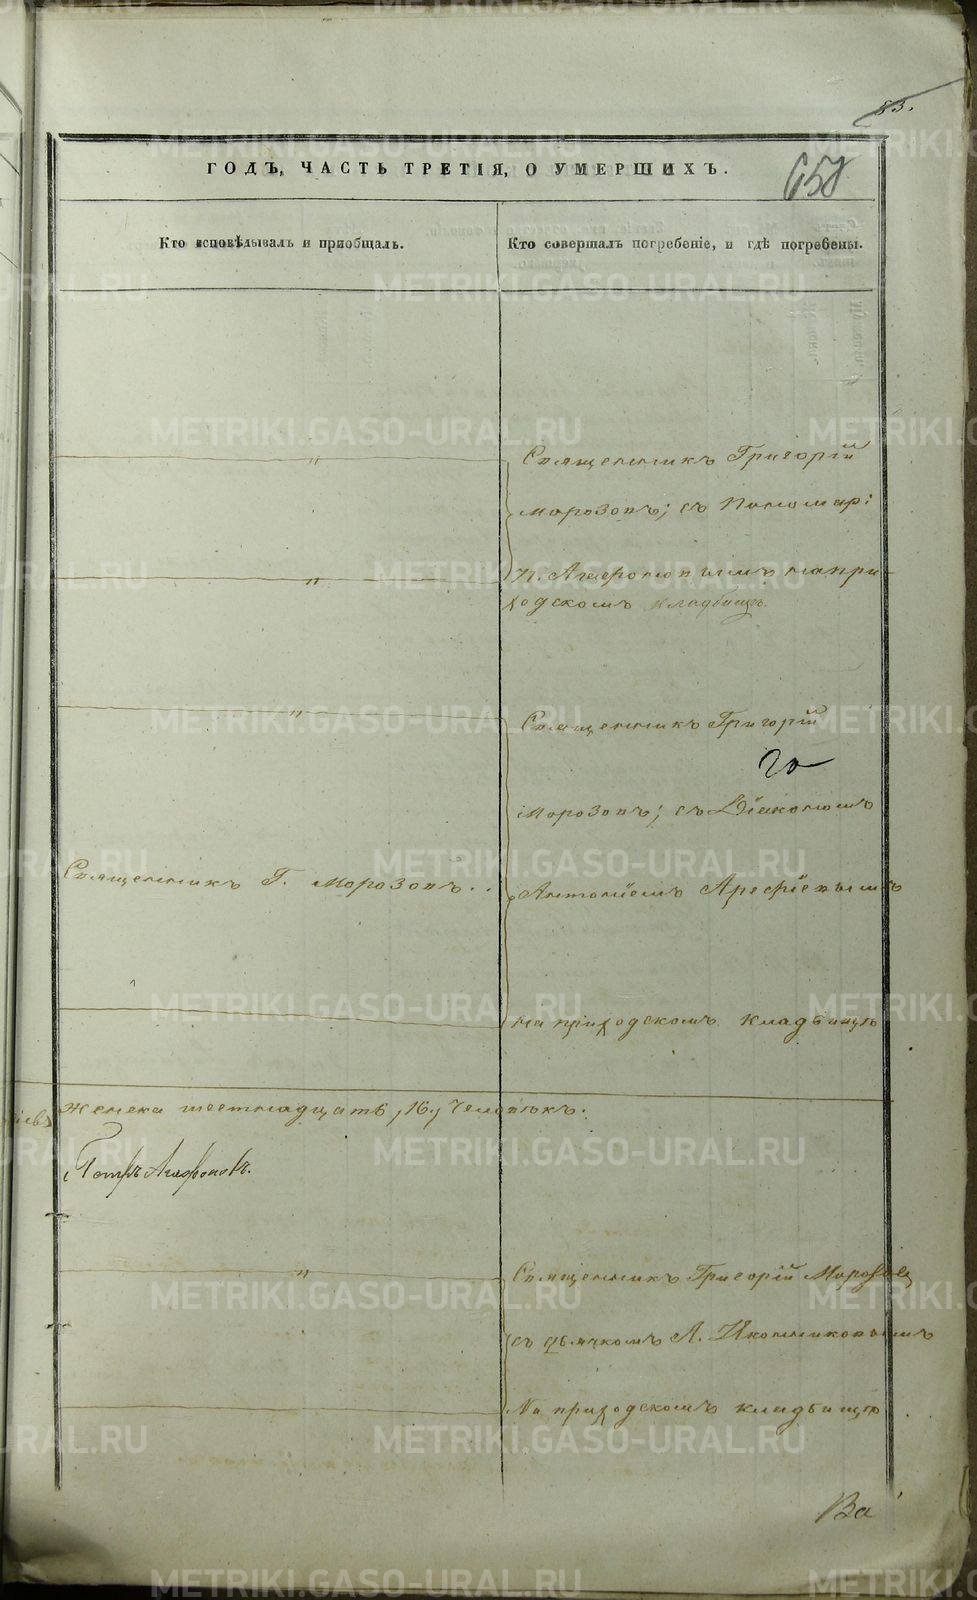 83.
658
ГОДЪ, ЧАСТЬ ТРЕТІЯ, О УМЕРШИХЪ.
Кто исповѣдывалъ и пріобщалъ.
Кто совершалъ погребеніе, и гдѣ погребены.
"
Священникъ Григорій
Морозовъ; съ Пономар:
"
П. Агафоновымъ на при
ходскомъ кладбищѣ
"
Священникъ Григорій
го
Морозовъ; съ Діакономъ
Священникъ Г. Морозовъ..
Антоніемъ Арефіевымъ
на приходскомъ кладбищѣ
женска шестнадцать, 16, Человѣкъ.
Петръ Агафоновъ.
"
Священникъ Григорій Морозовъ
съ дьячкомъ А. Иконниковымъ
На приходскомъ кладбищѣ
Ва
METRIKI.GASO-URAL.RU